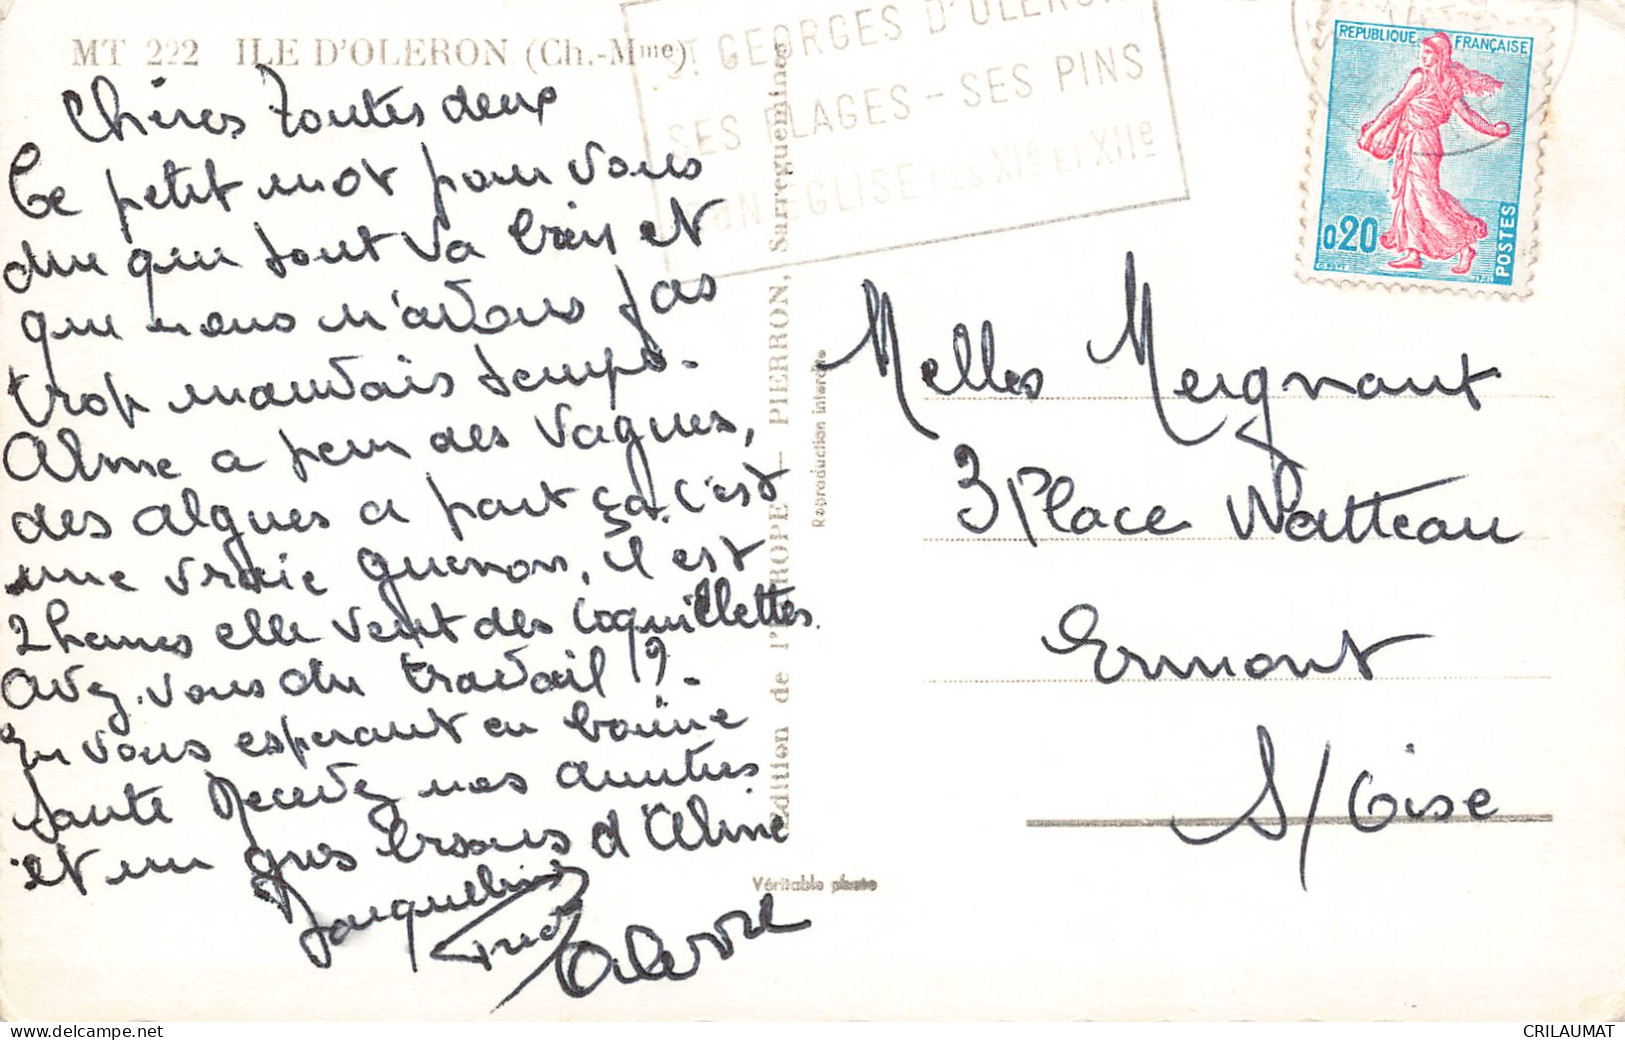 MT 222 ILE D'OLERON (Ch.-Mme)
Chères toutes deux
Ce petit mot pour vous
dire que tout va bien et
que nous n'avons pas
trop mauvais temps.
Aline a peur des vagues,
des algues a part ça c'est
une vraie guenon, il est
2 heures elle veut des coquillettes.
Avez-vous du travail ?
En vous esperant en bonne
Santé Recevez nos amitiés
et un gros bisous d'Aline
Jacqueline
Fred
ST GEORGES D'OLERON
SES PLAGES - SES PINS
SON EGLISE DES XIe ET XIIe
REPUBLIQUE FRANÇAISE
0,20
POSTES
Edition de l'EUROPE - PIERRON, Sarreguemines
Reproduction interdite
Véritable photo
Melles Meignant
3 Place Watteau
Ermont
S/Oise
CRILAUMAT